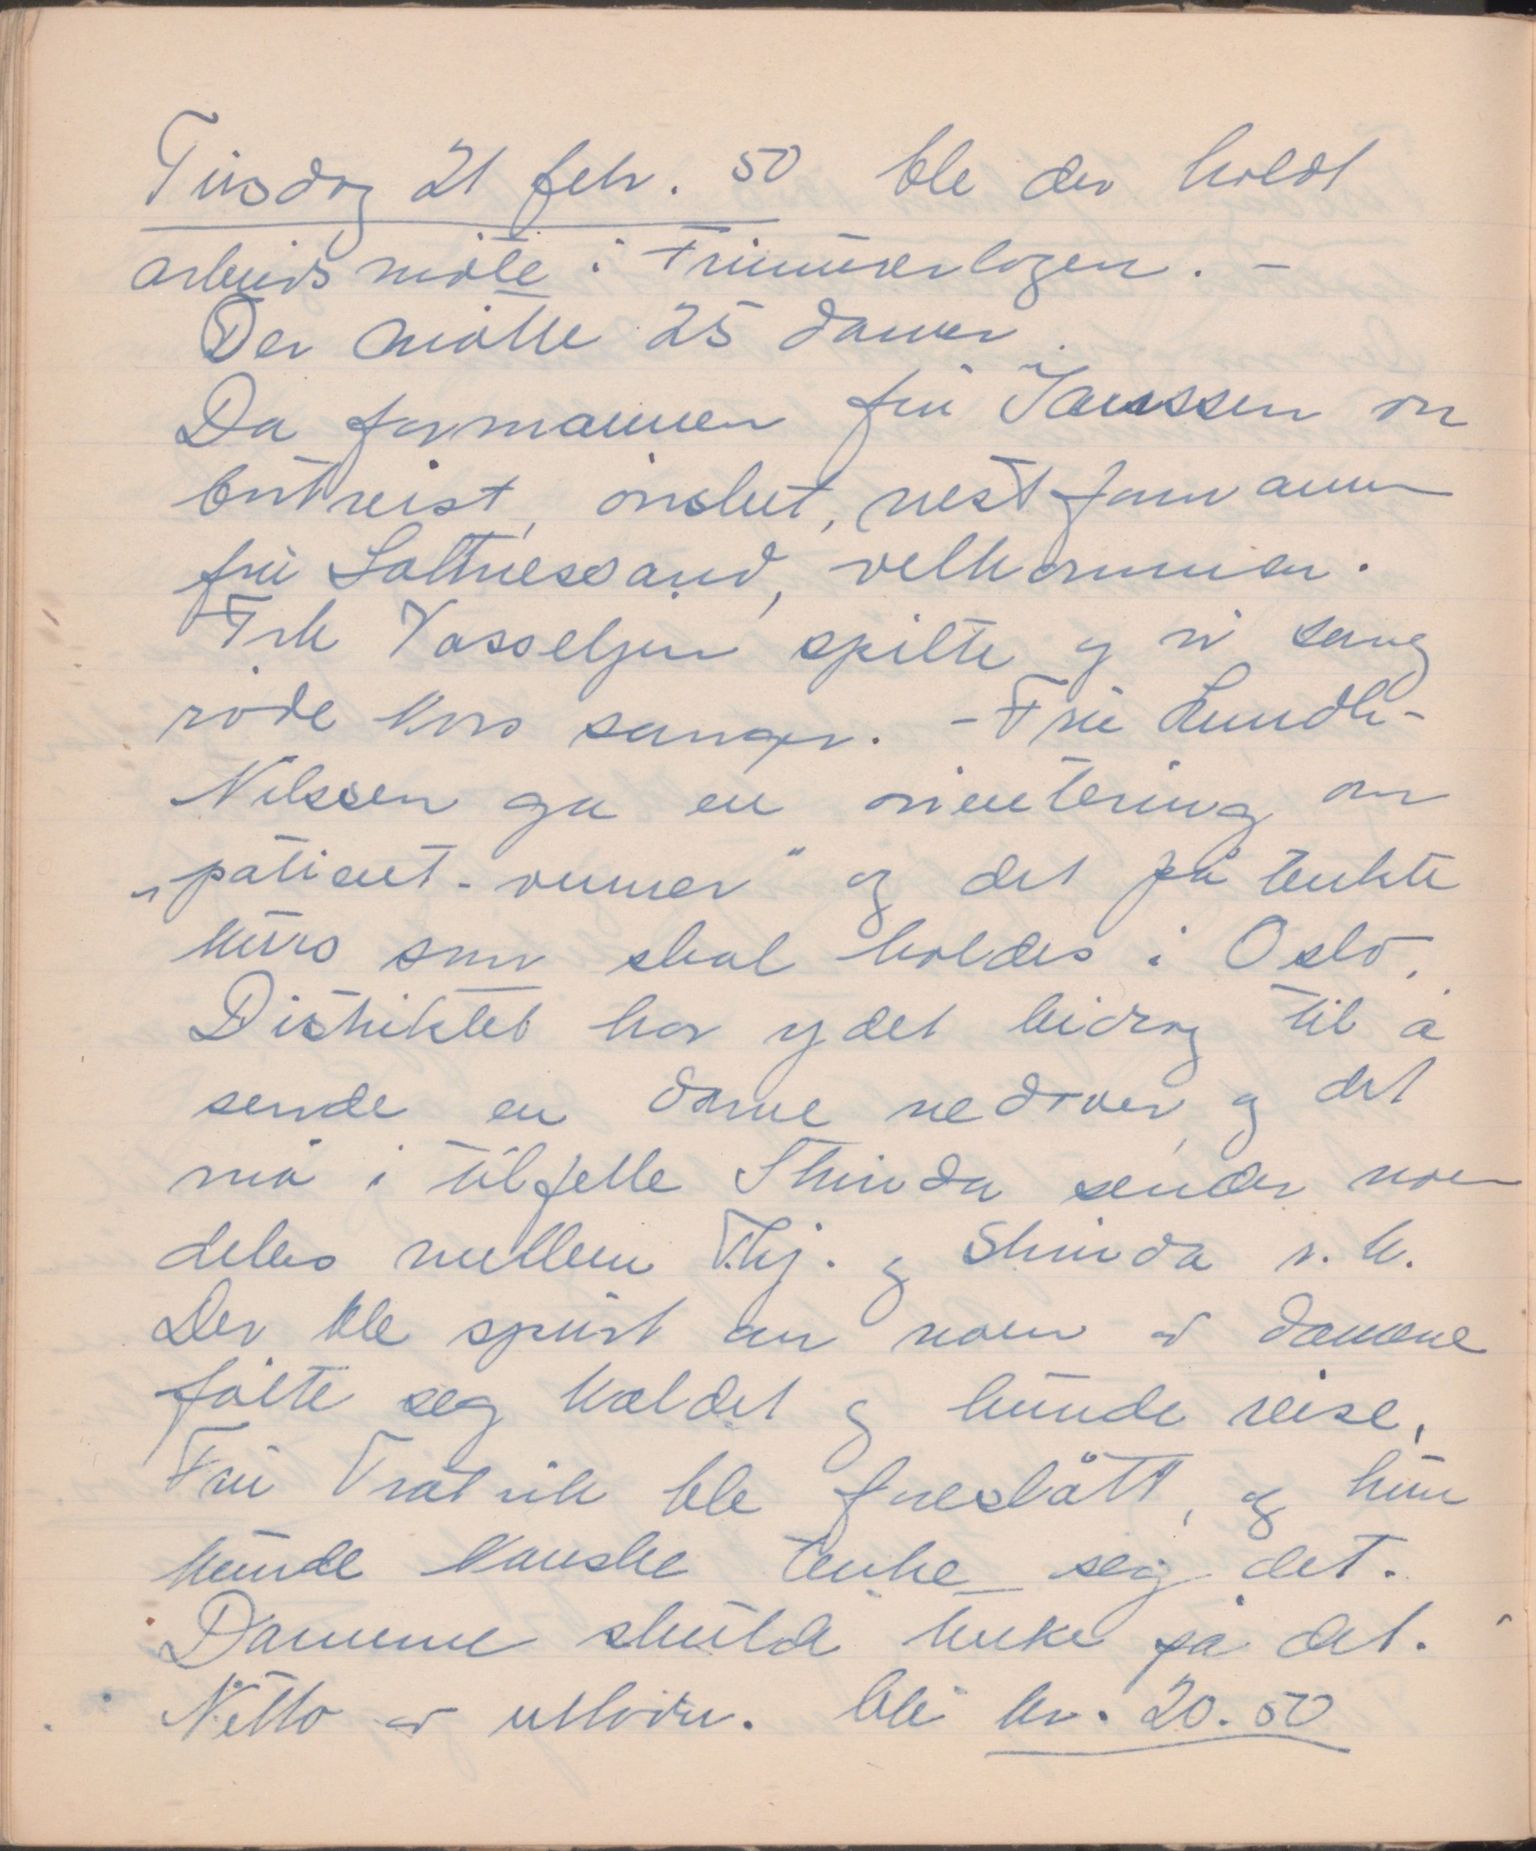 Tirsdag 21 febr. 50 ble der holdt
arbeidsmöte i Frimurerlogen. –
Der møtte 25 damer.
Da formannen fru Janssen er
bortreist, ønsket, nestformann
fru Saltnessand, velkommen.
Frk Vasseljen spilte og vi sang
røde kors sanger. – Fru Lundh-
Nilssen ga en orientering om
„patient-venner" og det på tenkte
kurs som skal holdes i Oslo.
Distriktet har ydet bidrag til å
sende en dame nedover, og det
må i tilfelle Strinda sender noen
deles mellem Thj. og Strinda r. k.
Der ble spurt om noen av damene
følte seg kaldet og kunde reise,
Fru Bratvik ble foreslått, og hun
kunde kanske tenke seg det.
Damene skulde tenke på det.
Netto av utlodn. ble kr. 20.50